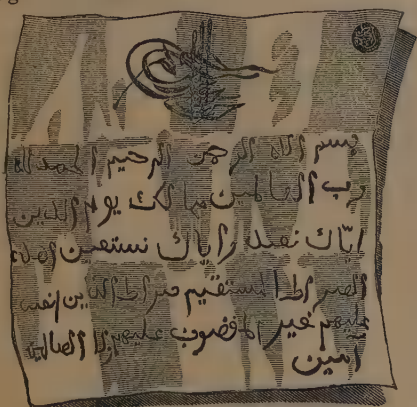 بسم الله الرحمن الرحيم الحمد لله
رب العالمين مالك يوم الدين
اياك نعبد واياك نستعين اهدنا
الصراط المستقيم صراط الذين انعمت
عليهم غير المغضوب عليهم ولا الضالين
آمين